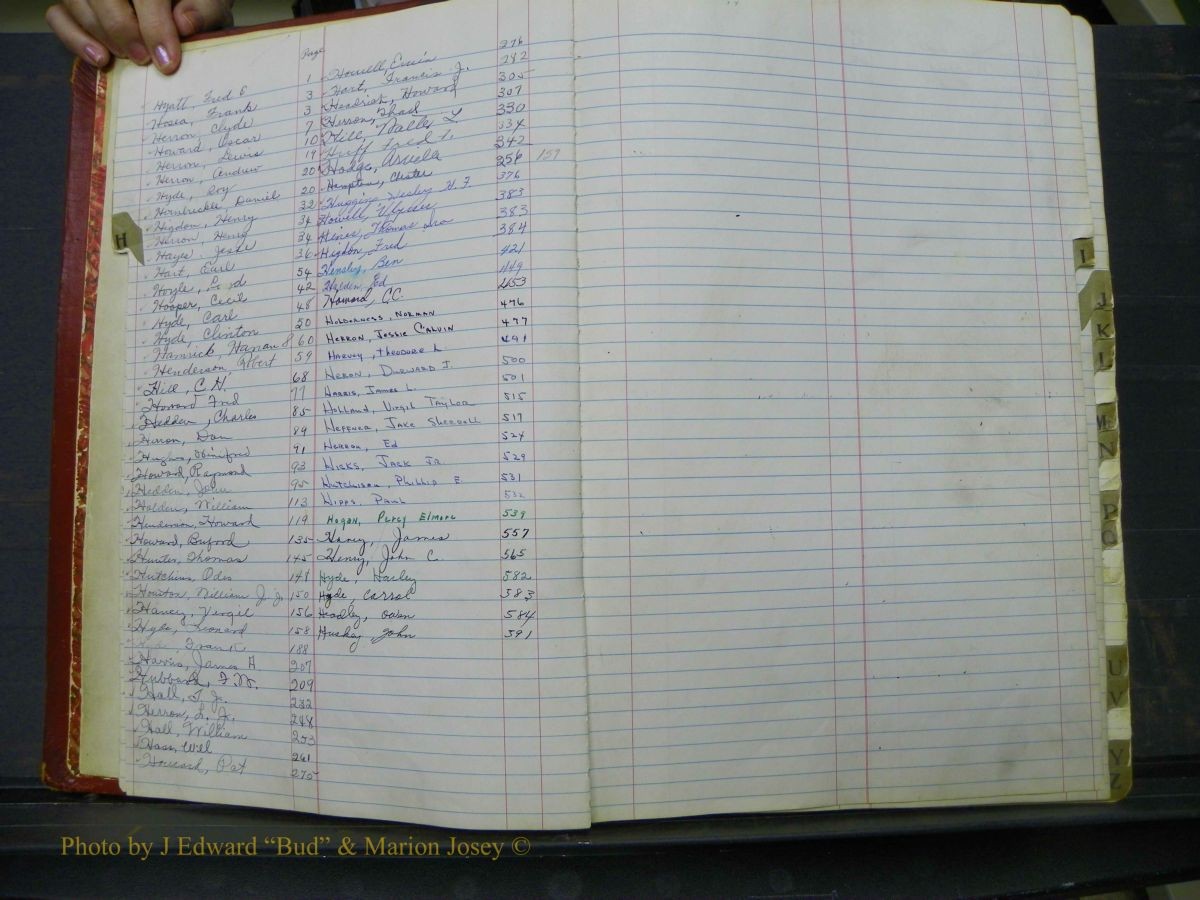 Page
Hyatt, Fred E 1
Hosea, Frank 3
Herron, Clyde 3
Howard, Oscar 7
Herron, Lewis 10
Herron, Andrew 19
Hyde, Roy 20
Hornbuckle, Daniel 20
Higdon, Henry 32
Herron, Henry 34
Hayes, Jesse 34
Hart, Earl 36
Hoyle, 54
Hooper, Cecil 42
Hyde, Carl 48
Hyde, Clinton 50
Hamrick, 60
Henderson, Robert 59
Hill, C.H. 68
Howard Fred 77
Hedden, Charles 85
Herron, Dan 89
Hughes, 91
Howard, Raymond 93
Hedden, John 95
Holden, William 113
Henderson, Howard 119
Howard, Buford 135
Hunter, Thomas 145
Hutchins, Odis 148
Houston, William J. Jr 150
Haney, Vergil 156
Hyde, Leonard 158
Hyde, Frank 188
Harris, James H 207
Hubbard, F.W. 209
Hall, T. J. 232
Herron, L. J. 248
Hall, William 253
Hass, Will 261
Howard, Pat 275
Howell, Ervin 276
Hart, Francis J. 282
Headrick, Howard 305
Herron, Thad 307
Hill, Walter L 330
Huff Fred L. 334
Hodge, 342
Hampton, Chester 256 157
Huggins, Wesley W. F. 376
Howell, Clyde 383
Hines, Thomas Ira 383
Higdon, Fred 384
Hensley, Ben 421
Holden, Ed 449
Howard, C.C. 453
Holderness, Norman 476
Herron, Jessie Calvin 477
Harvey, Theodore L 491
Heron, Durward I. 500
Harris, James L. 501
Holland, Virgil Taylor 515
Heffner, Jake Sherrill 517
Herron, Ed 524
Hicks, Jack Jr 529
Hutchison, Phillip E. 531
Hipps, Paul 532
Hogan, Percy Elmore 539
Haney, James 557
Henry, John C 565
Hyde, Harley 582
Hyde, Carrol 583
Hadley, Owen 584
Huskey John 591
H
I
J
K
L
M
N
P
Q
U
V
Y
Z
Photo by J Edward “Bud” & Marion Josey ©